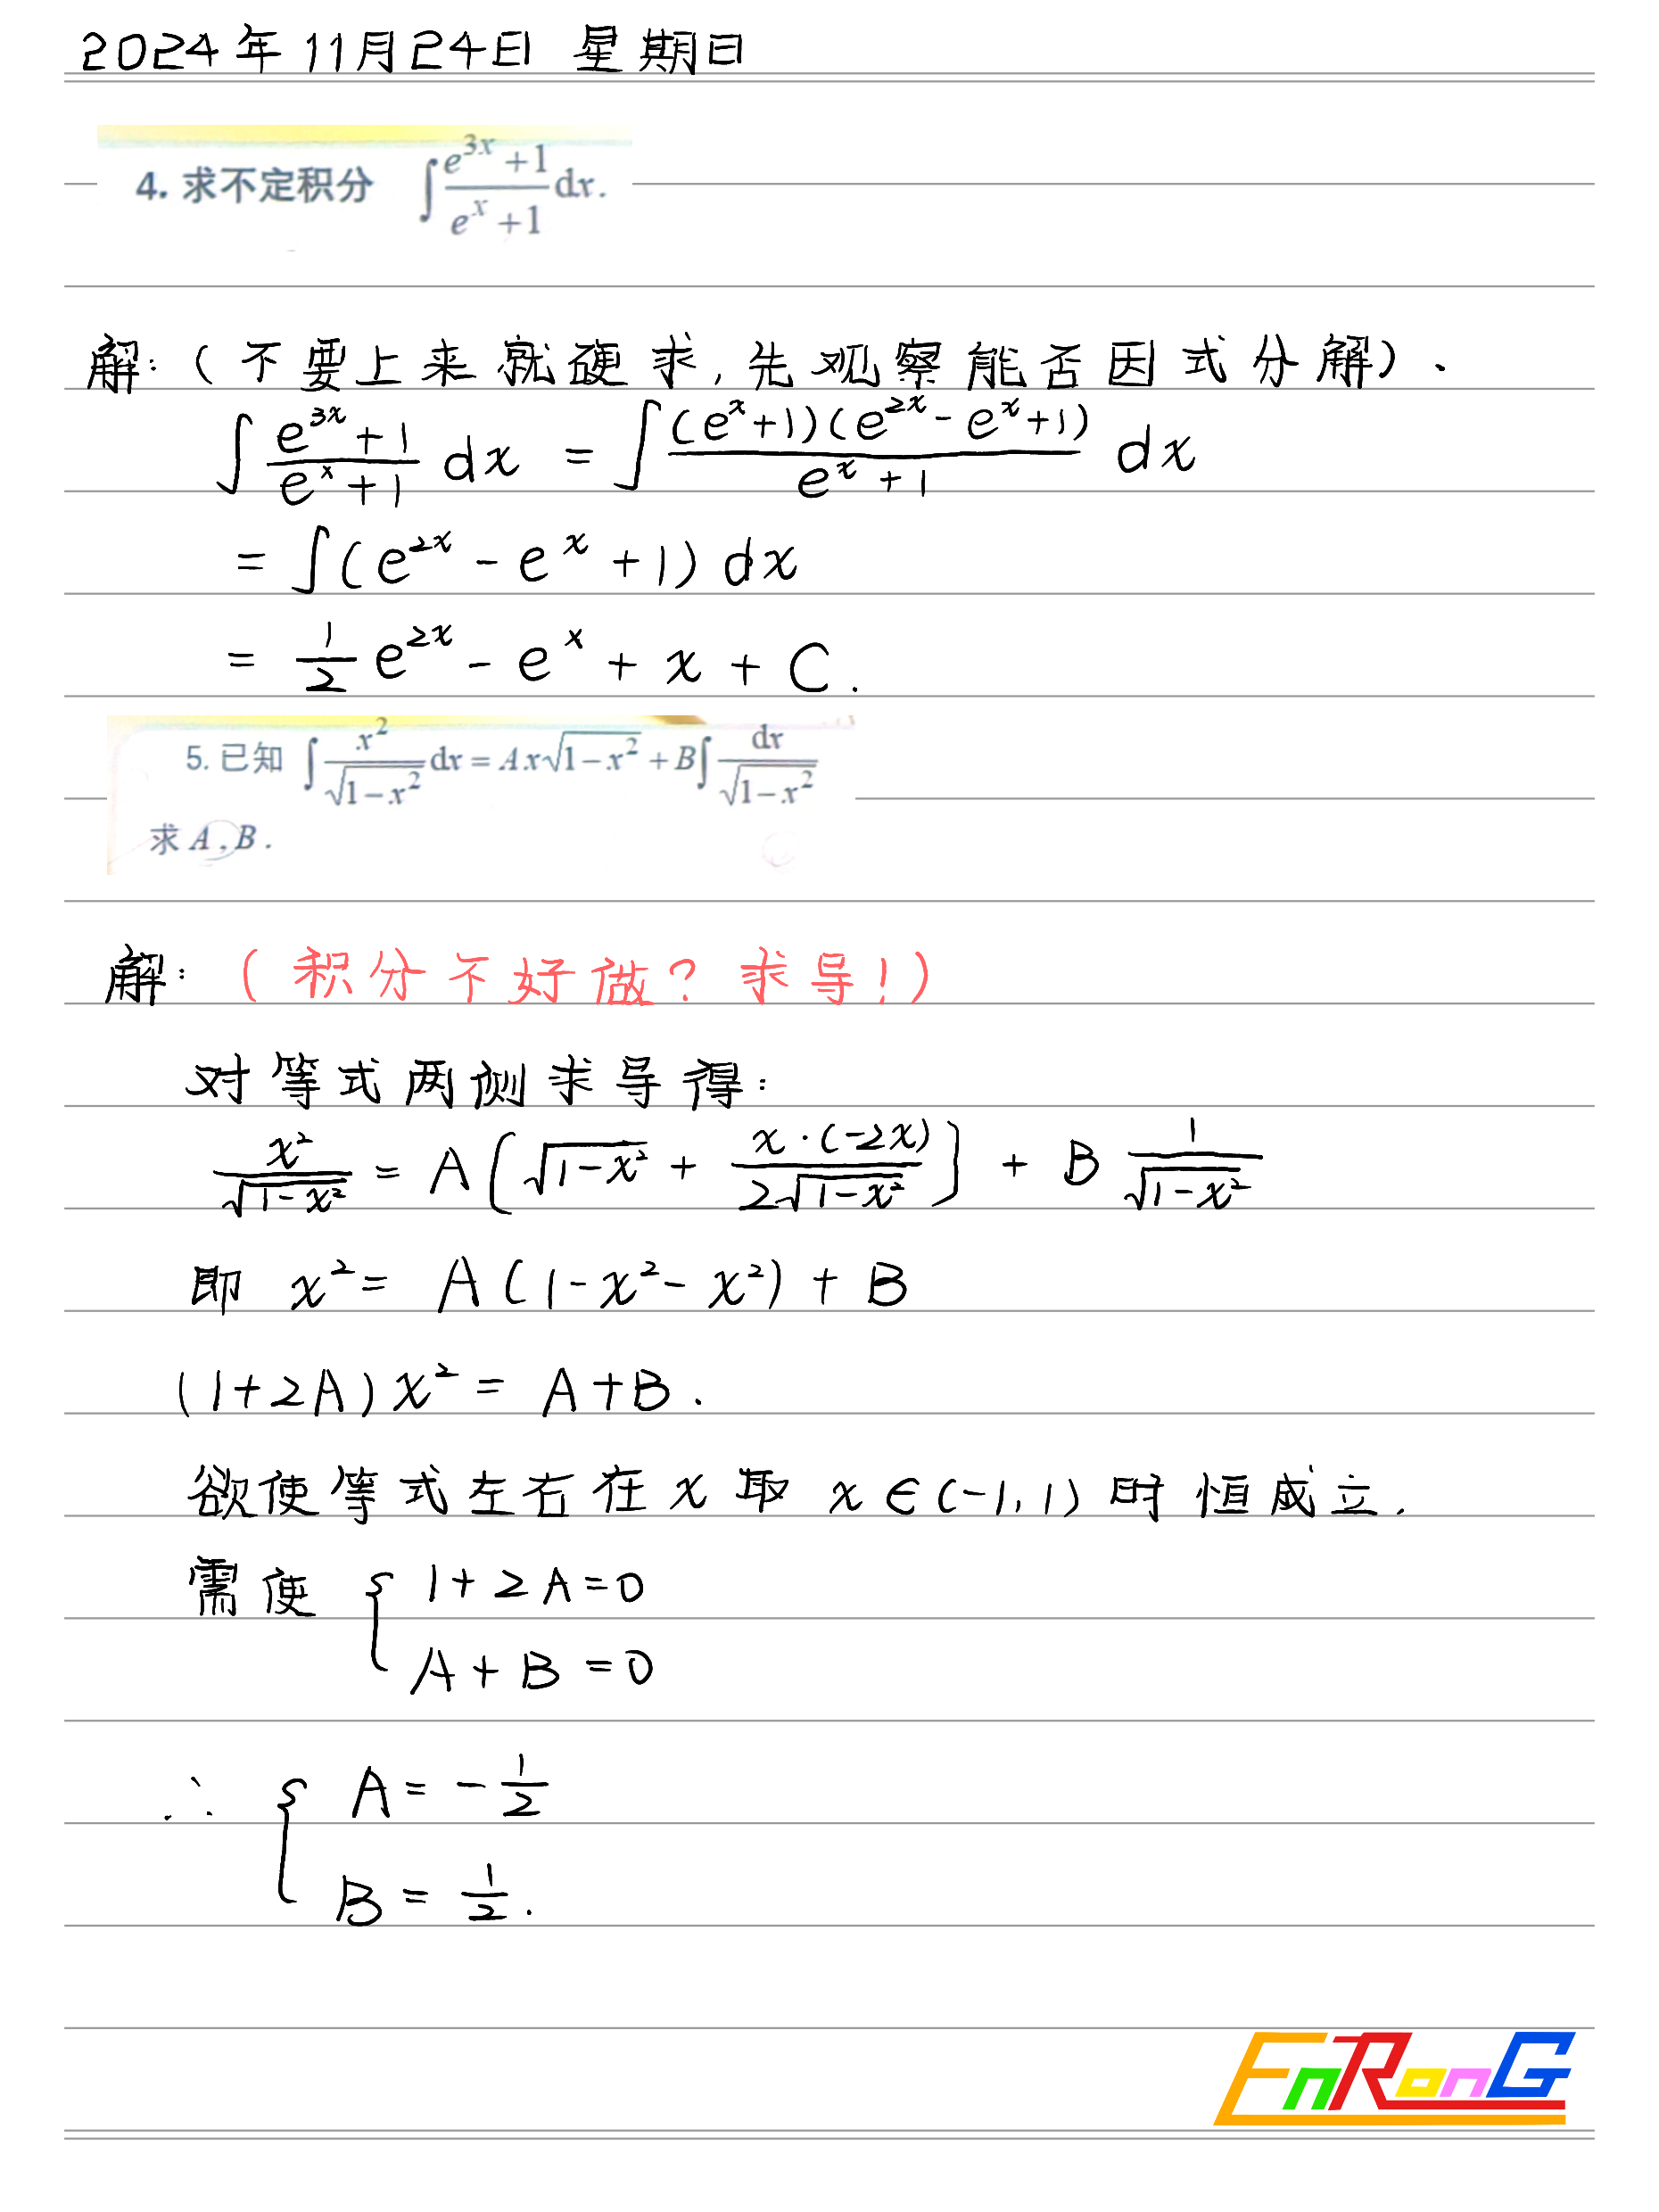 2024年11月24日 星期日
4. 求不定积分 ∫ (e^{3x}+1)/(e^x+1) dx.
解:(不要上来就硬求,先观察能否因式分解)、
∫ (e^{3x}+1)/(e^x+1) dx = ∫ (e^x+1)(e^{2x}-e^x+1)/(e^x+1) dx
= ∫(e^{2x}-e^x+1) dx
= 1/2 e^{2x} - e^x + x + C.
5. 已知 ∫ x²/√(1-x²) dx = Ax√(1-x²) + B∫ dx/√(1-x²)
求 A,B.
解:(积分不好做?求导!)
对等式两侧求导得:
x²/√(1-x²) = A[√(1-x²) + x·(-2x)/(2√(1-x²))] + B 1/√(1-x²)
即 x² = A(1-x²-x²)+B
(1+2A)x² = A+B.
欲使等式左右在 x 取 x∈(-1,1) 时恒成立.
需使 { 1+2A=0
A+B=0
∴ { A=-1/2
B=1/2.
EnRonG